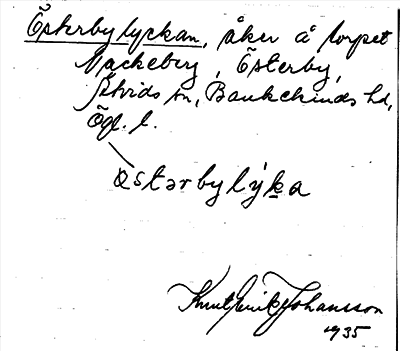 Österbylyckan, åker å torpet
Mackeberg, Österby,
Åtvids sn, Bankekinds hd,
Ögl. l.
östərbylýka
Knut Erik Johansson
1935